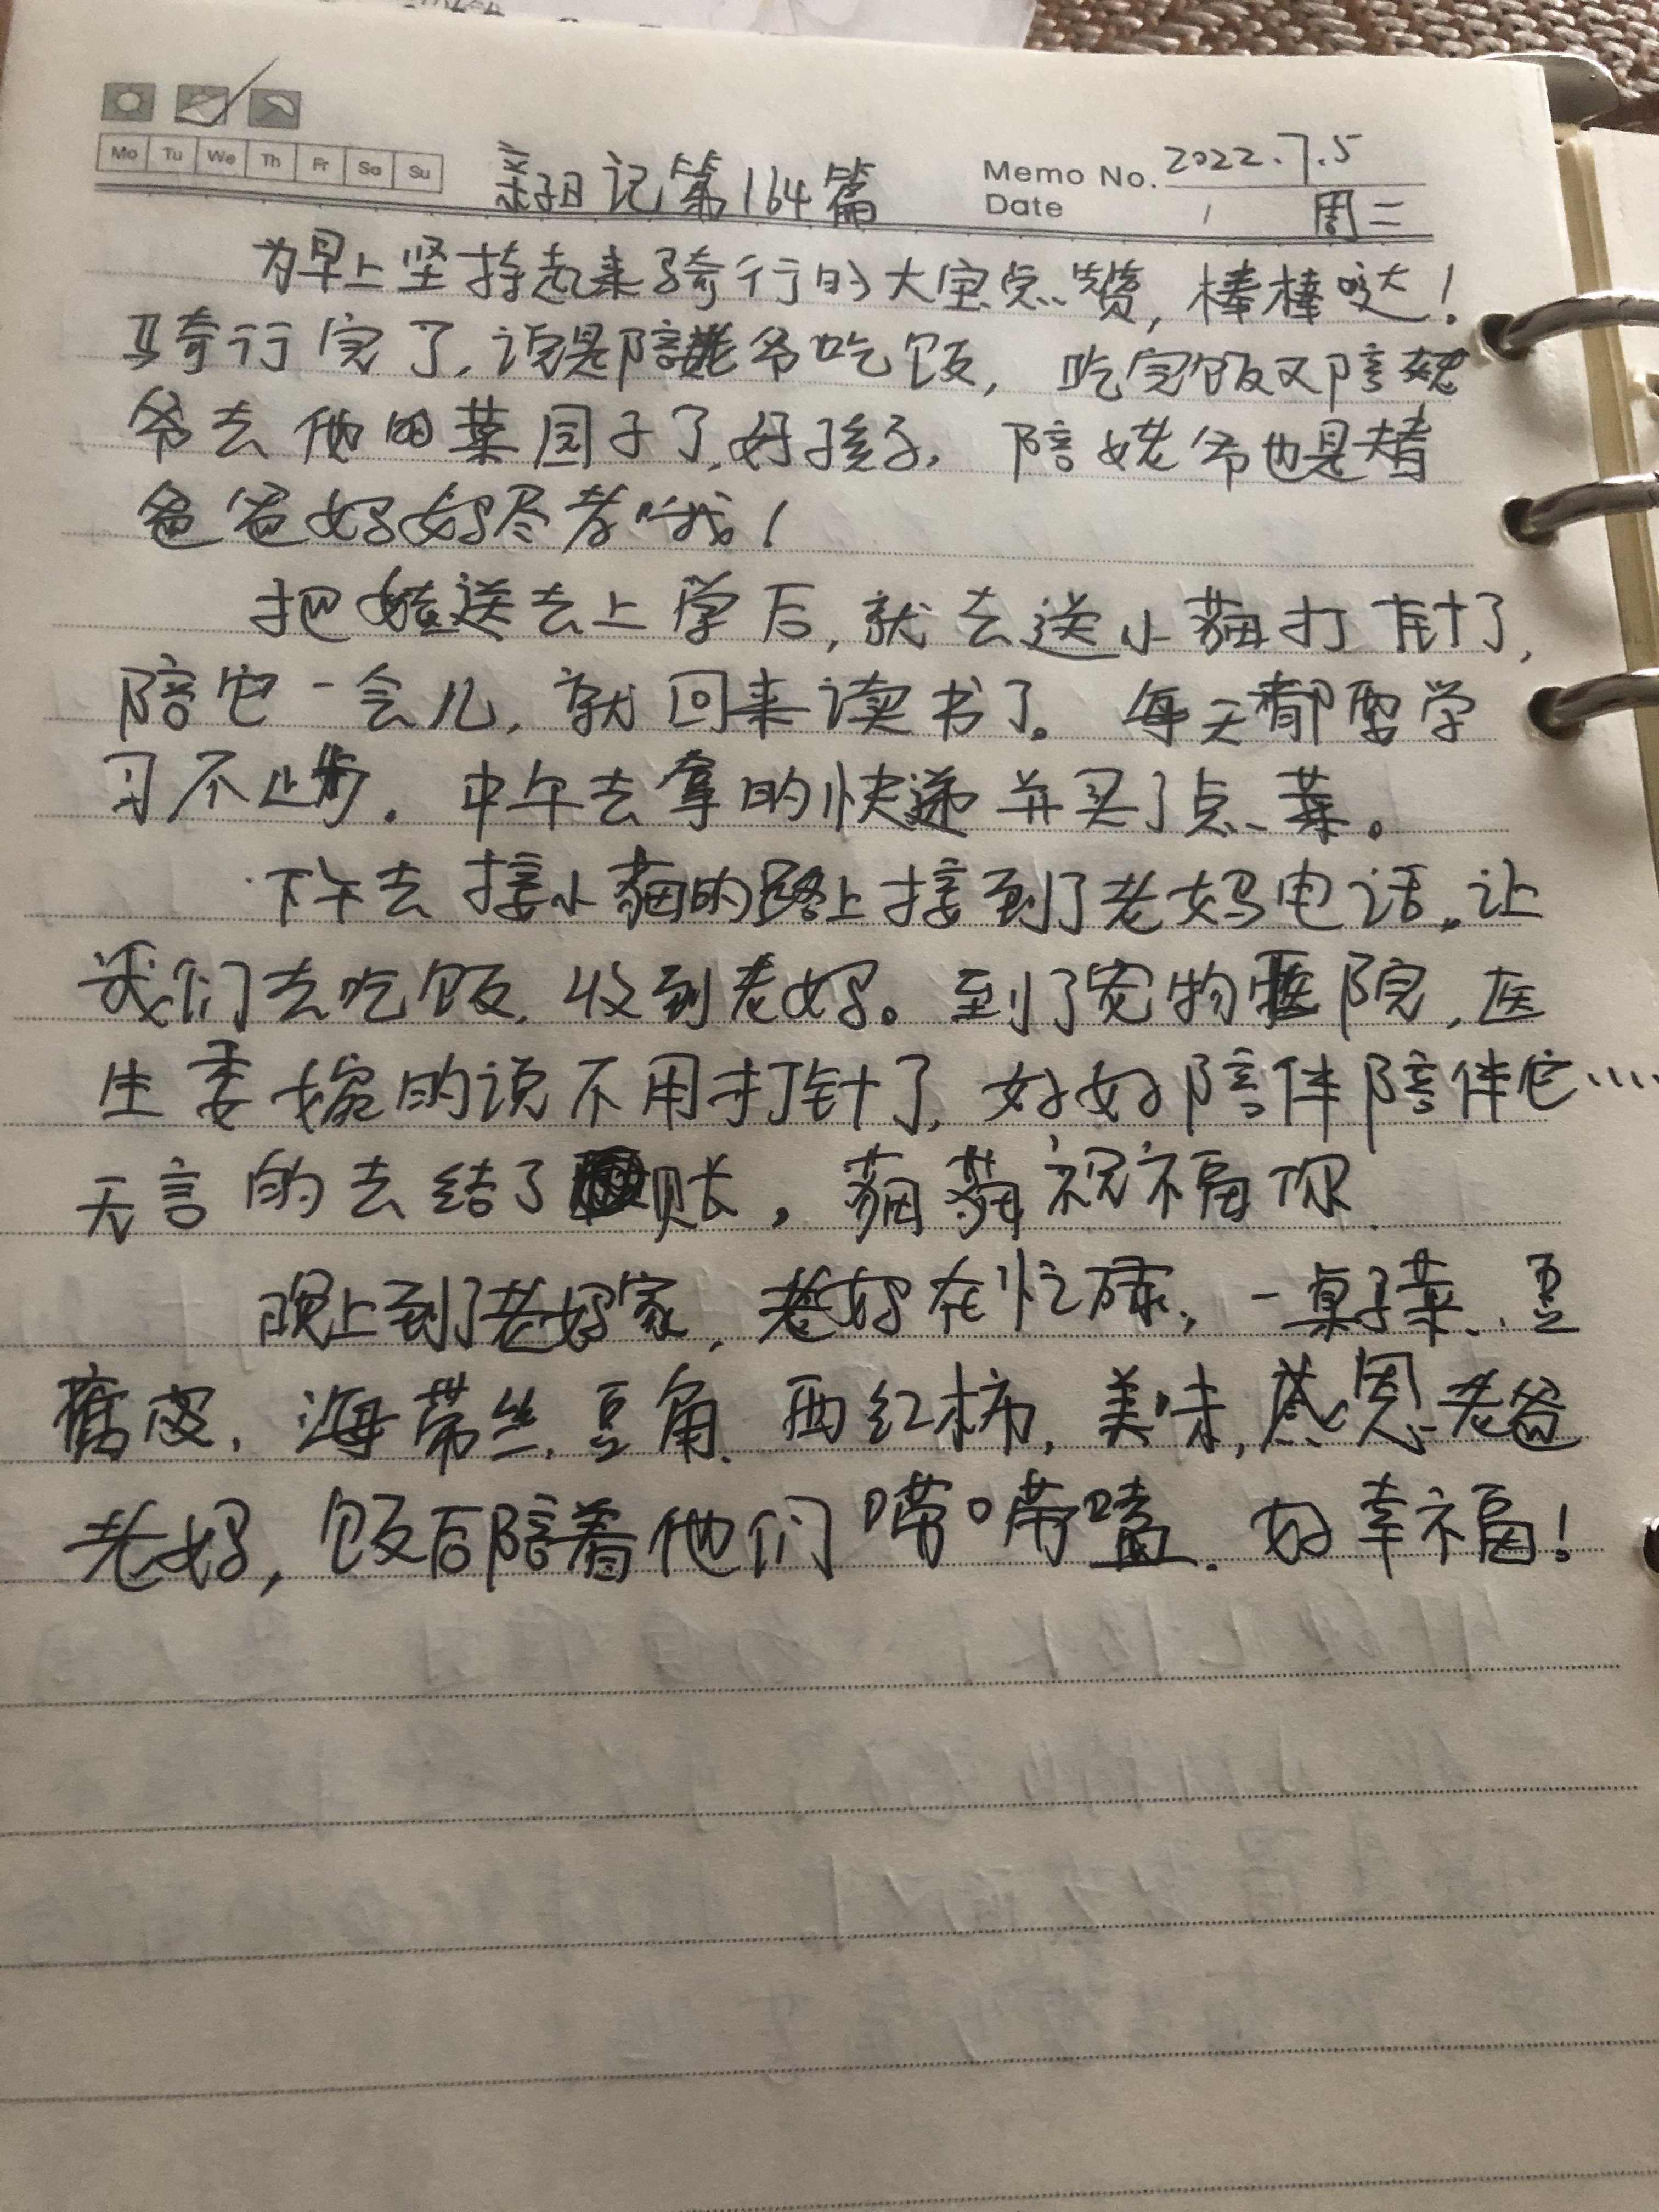 Mo Tu We Th Fr Sa Su
亲子日记第164篇
Memo No. 2022.7.5
Date 周二
为早上坚持起来骑行的大宝点赞，棒棒哒！
骑行完了，说是陪姥爷吃饭，吃完饭又陪姥
爷去他的菜园子了，好孩子，陪姥爷也是替
爸爸好好尽孝哦！
把娃送去上学后，就去送小猫打针了，
陪它一会儿，就回来读书了。每天都要学
习不止步。中午去拿的快递并买了点菜。
下午去接小猫的路上接到了老妈电话，让
我们去吃饭，收到老妈。到了宠物医院，医
生委婉的说不用打针了，好好陪伴陪伴它……
无言的去结了账，猫猫祝福你
晚上到了老妈家，老妈在忙碌，一桌子菜、豆
腐皮、海带丝、豆角、西红柿，美味，感恩老爸
老妈，饭后陪着他们唠唠嗑，好幸福！